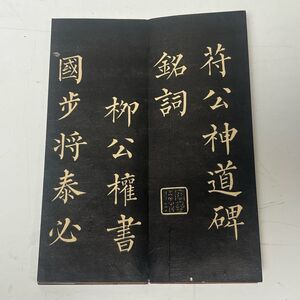 苻公神道碑
銘詞
柳公權書
國步将泰必